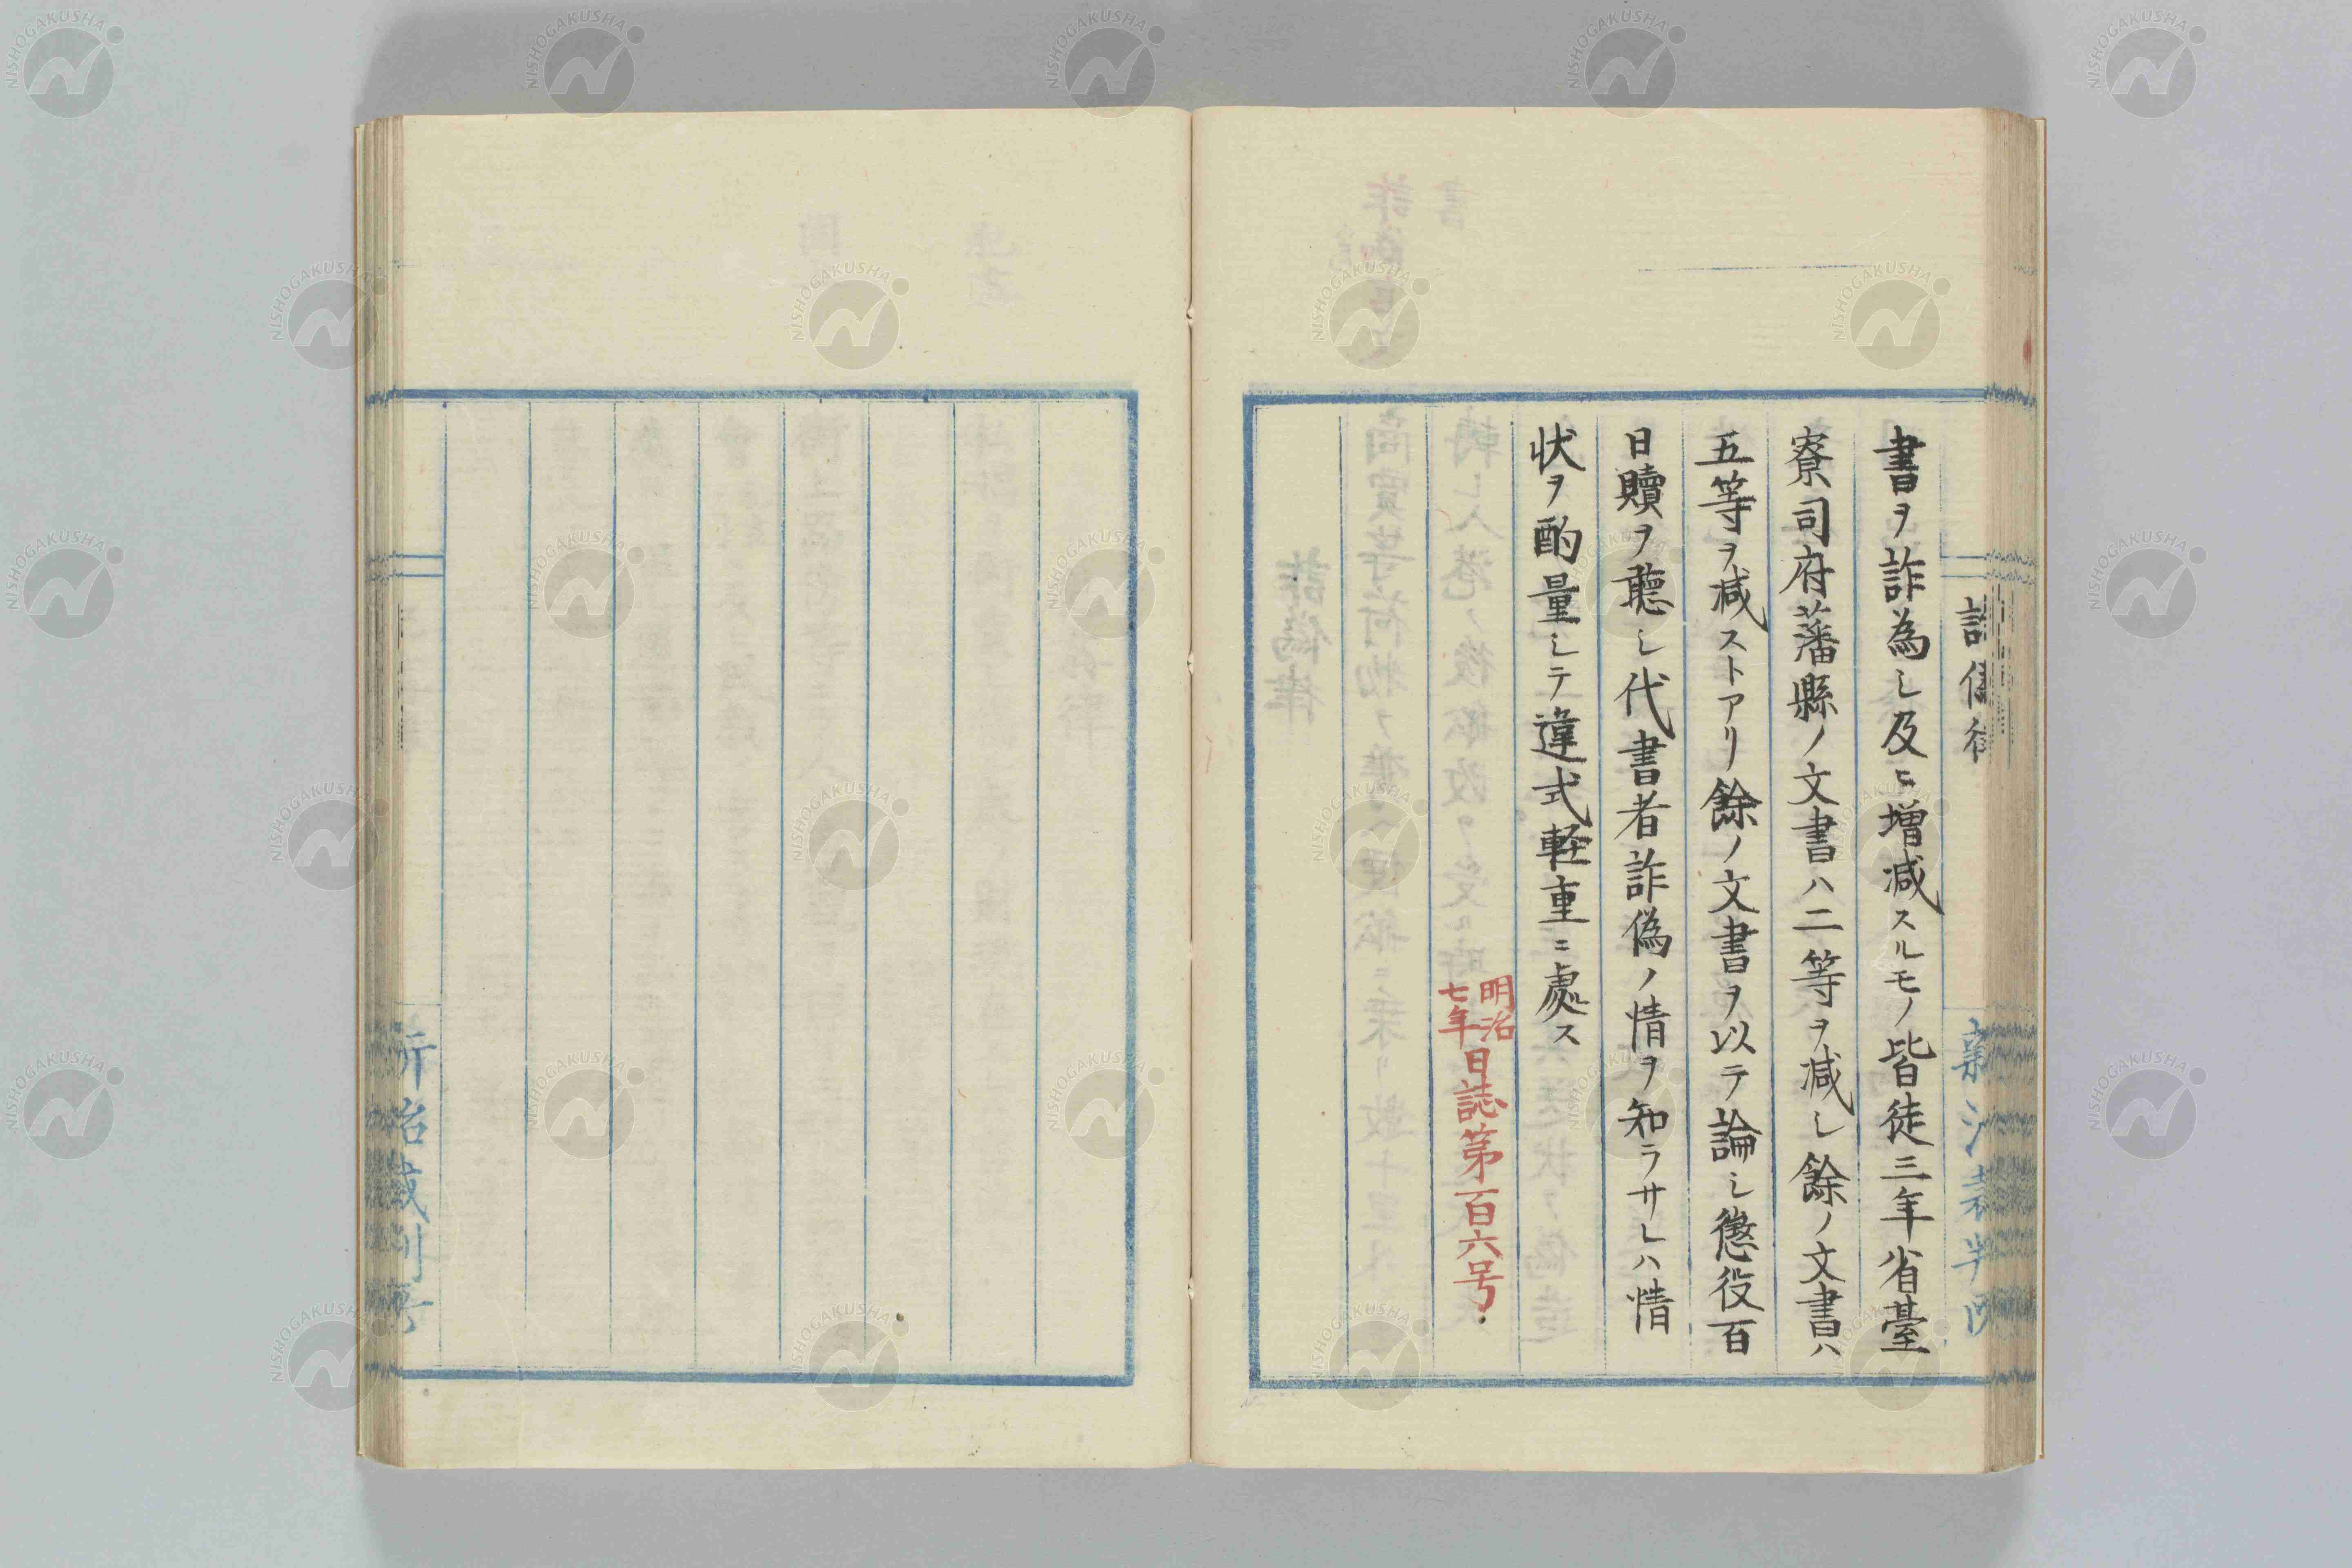 書ヲ詐為シ及ヒ増減スルモノ皆徒三年省臺
寮司府藩縣ノ文書ハ二等ヲ減シ餘ノ文書ハ
五等ヲ減ストアリ餘ノ文書ヲ以テ論シ懲役百
日贖ヲ聴シ代書者詐偽ノ情ヲ知ラサレハ情
状ヲ酌量シテ違式軽重ニ處ス
明治七年日誌第百六号
NISHOGAKUSHA